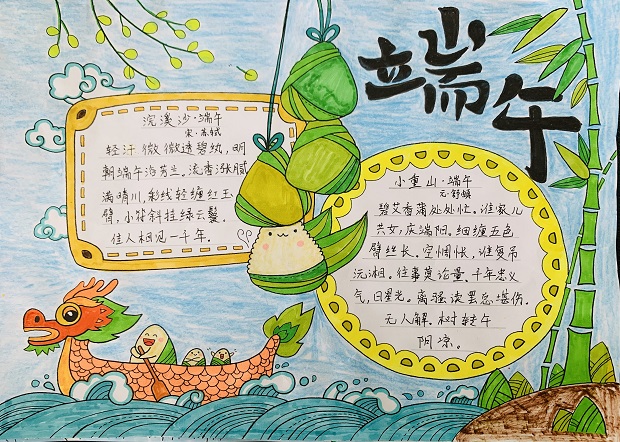 端午
浣溪沙·端午
宋·苏轼
轻汗微微透碧纨,明
朝端午浴芳兰。流香涨腻
满晴川。彩线轻缠红玉
臂,小符斜挂绿云鬟。
佳人相见一千年。
小重山·端午
元·舒頔
碧艾香蒲处处忙。谁家儿
共女,庆端阳。细缠五色
臂丝长。空惆怅,谁复吊
沅湘。往事莫论量。千年忠义
气,日星光。离骚读罢总堪伤。
无人解。树转午
阴凉。